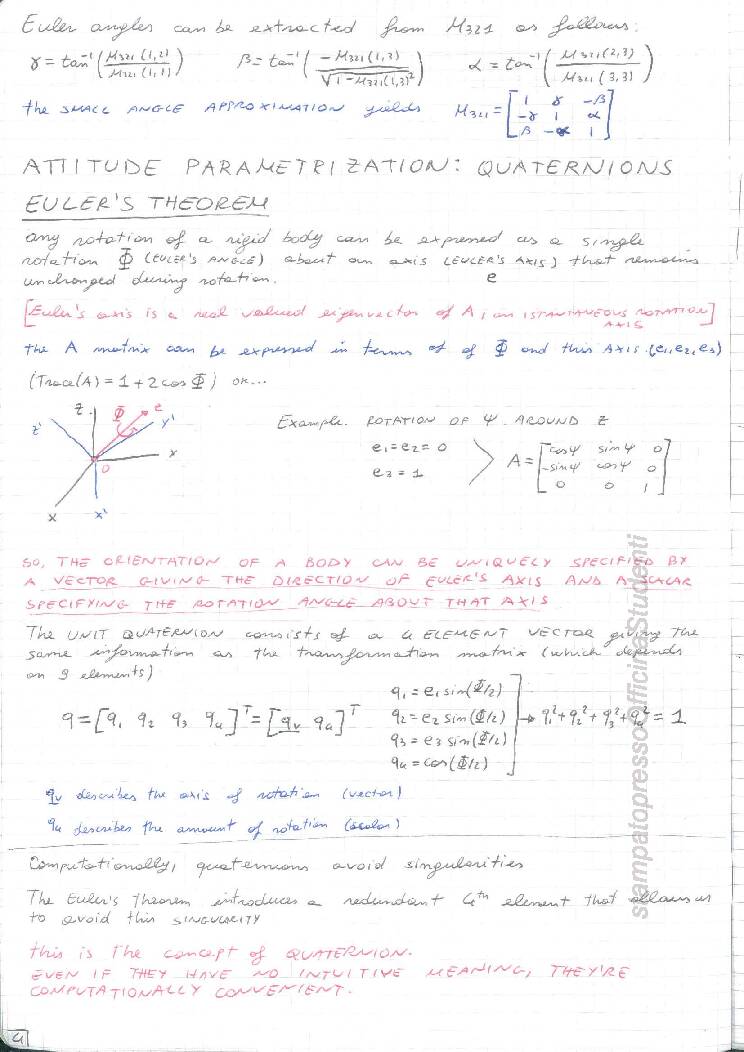 Euler angles can be extracted from M321 as follows:
γ = tan⁻¹(M321(1,2)/M321(1,1))   β = tan⁻¹(-M321(1,3)/√(1-M321(1,3)²))   α = tan⁻¹(M321(2,3)/M321(3,3))
the SMALL ANGLE APPROXIMATION yields   M321 = [1 γ -β; -γ 1 α; β -α 1]
ATTITUDE PARAMETRIZATION: QUATERNIONS
EULER'S THEOREM
any rotation of a rigid body can be expressed as a single
rotation Φ (EULER'S ANGLE) about an axis (EULER'S AXIS) that remains
unchanged during rotation.   e
[Euler's axis is a real valued eigenvector of A; an ISTANTANEOUS ROTATION
AXIS]
the A matrix can be expressed in terms of of Φ and this AXIS. (e1, e2, e3)
(Trace(A) = 1+2cosΦ) OR...
z   Φ   e
z'   y'
x
0
x   x'
Example. ROTATION OF Ψ AROUND Z
e1=e2=0
e3=1
A = [cosΨ sinΨ 0; -sinΨ cosΨ 0; 0 0 1]
SO, THE ORIENTATION OF A BODY CAN BE UNIQUELY SPECIFIED BY
A VECTOR GIVING THE DIRECTION OF EULER'S AXIS AND A SCALAR
SPECIFYING THE ROTATION ANGLE ABOUT THAT AXIS
The UNIT QUATERNION consists of a 4 ELEMENT VECTOR giving the
same information as the transformation matrix (which depends
on 9 elements)
q = [q1 q2 q3 q4]ᵀ = [qv q4]ᵀ
q1 = e1 sin(Φ/2)
q2 = e2 sin(Φ/2)
q3 = e3 sin(Φ/2)
q4 = cos(Φ/2)
→ q1²+q2²+q3²+q4² = 1
qv describes the axis of rotation (vector)
q4 describes the amount of rotation (scalar)
Computationally, quaternions avoid singularities
The Euler's Theorem introduces a redundant 4th element that allows us
to avoid this SINGULARITY
this is the concept of QUATERNION.
EVEN IF THEY HAVE NO INTUITIVE MEANING, THEY'RE
COMPUTATIONALLY CONVENIENT.
4
stampatopressoOfficinaStudenti